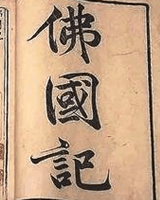 佛國記